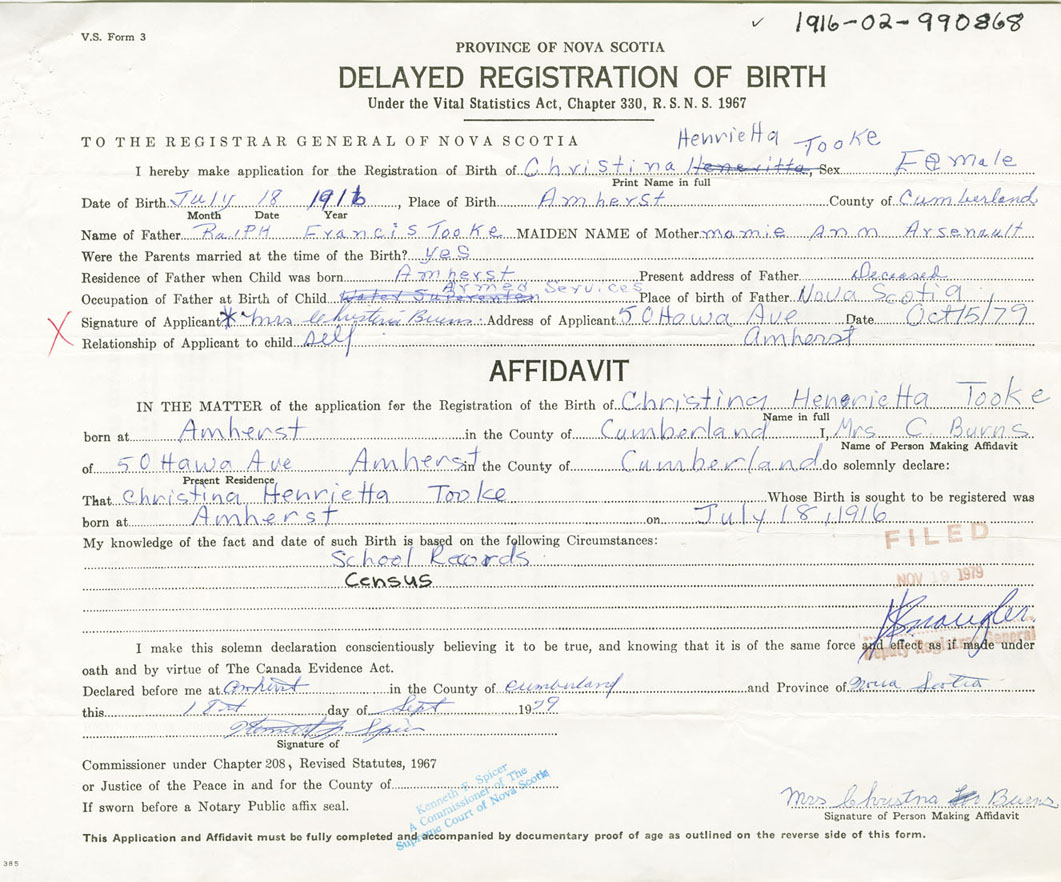 V.S. Form 3
✓ 1916-02-990868
PROVINCE OF NOVA SCOTIA
DELAYED REGISTRATION OF BIRTH
Under the Vital Statistics Act, Chapter 330, R. S. N. S. 1967
TO THE REGISTRAR GENERAL OF NOVA SCOTIA
Henrietta Tooke
I hereby make application for the Registration of Birth of Christina Heneritta, Sex Female
Print Name in full
Date of Birth July 18 1916, Place of Birth Amherst County of Cumberland
Month Date Year
Name of Father RalPH Francis Tooke MAIDEN NAME of Mother mamie Ann Arsenault
Were the Parents married at the time of the Birth? yes
Residence of Father when Child was born Amherst Present address of Father Deceased
Armed Services
Occupation of Father at Birth of Child Place of birth of Father Nova Scotia
X Signature of Applicant * Mrs Christina Burns Address of Applicant 5 Ottawa Ave Date Oct 15/79
Relationship of Applicant to child self Amherst
AFFIDAVIT
IN THE MATTER of the application for the Registration of the Birth of Christina Henrietta Tooke
Name in full
born at Amherst in the County of Cumberland I, Mrs. C. Burns
Name of Person Making Affidavit
of 5 Ottawa Ave Amherst in the County of Cumberland do solemnly declare:
Present Residence
That Christina Henrietta Tooke Whose Birth is sought to be registered was
born at Amherst on July 18, 1916
My knowledge of the fact and date of such Birth is based on the following Circumstances:
School Records
Census
FILED
NOV 19 1979
Deputy Registrar General
I make this solemn declaration conscientiously believing it to be true, and knowing that it is of the same force and effect as if made under
oath and by virtue of The Canada Evidence Act.
Declared before me at Amherst in the County of Cumberland and Province of Nova Scotia
this 1st day of Sept 1979
Signature of
Commissioner under Chapter 208, Revised Statutes, 1967
or Justice of the Peace in and for the County of
If sworn before a Notary Public affix seal.
Kenneth F. Spicer
A Commissioner of The
Supreme Court of Nova Scotia
Mrs Christna Burns
Signature of Person Making Affidavit
This Application and Affidavit must be fully completed and accompanied by documentary proof of age as outlined on the reverse side of this form.
385